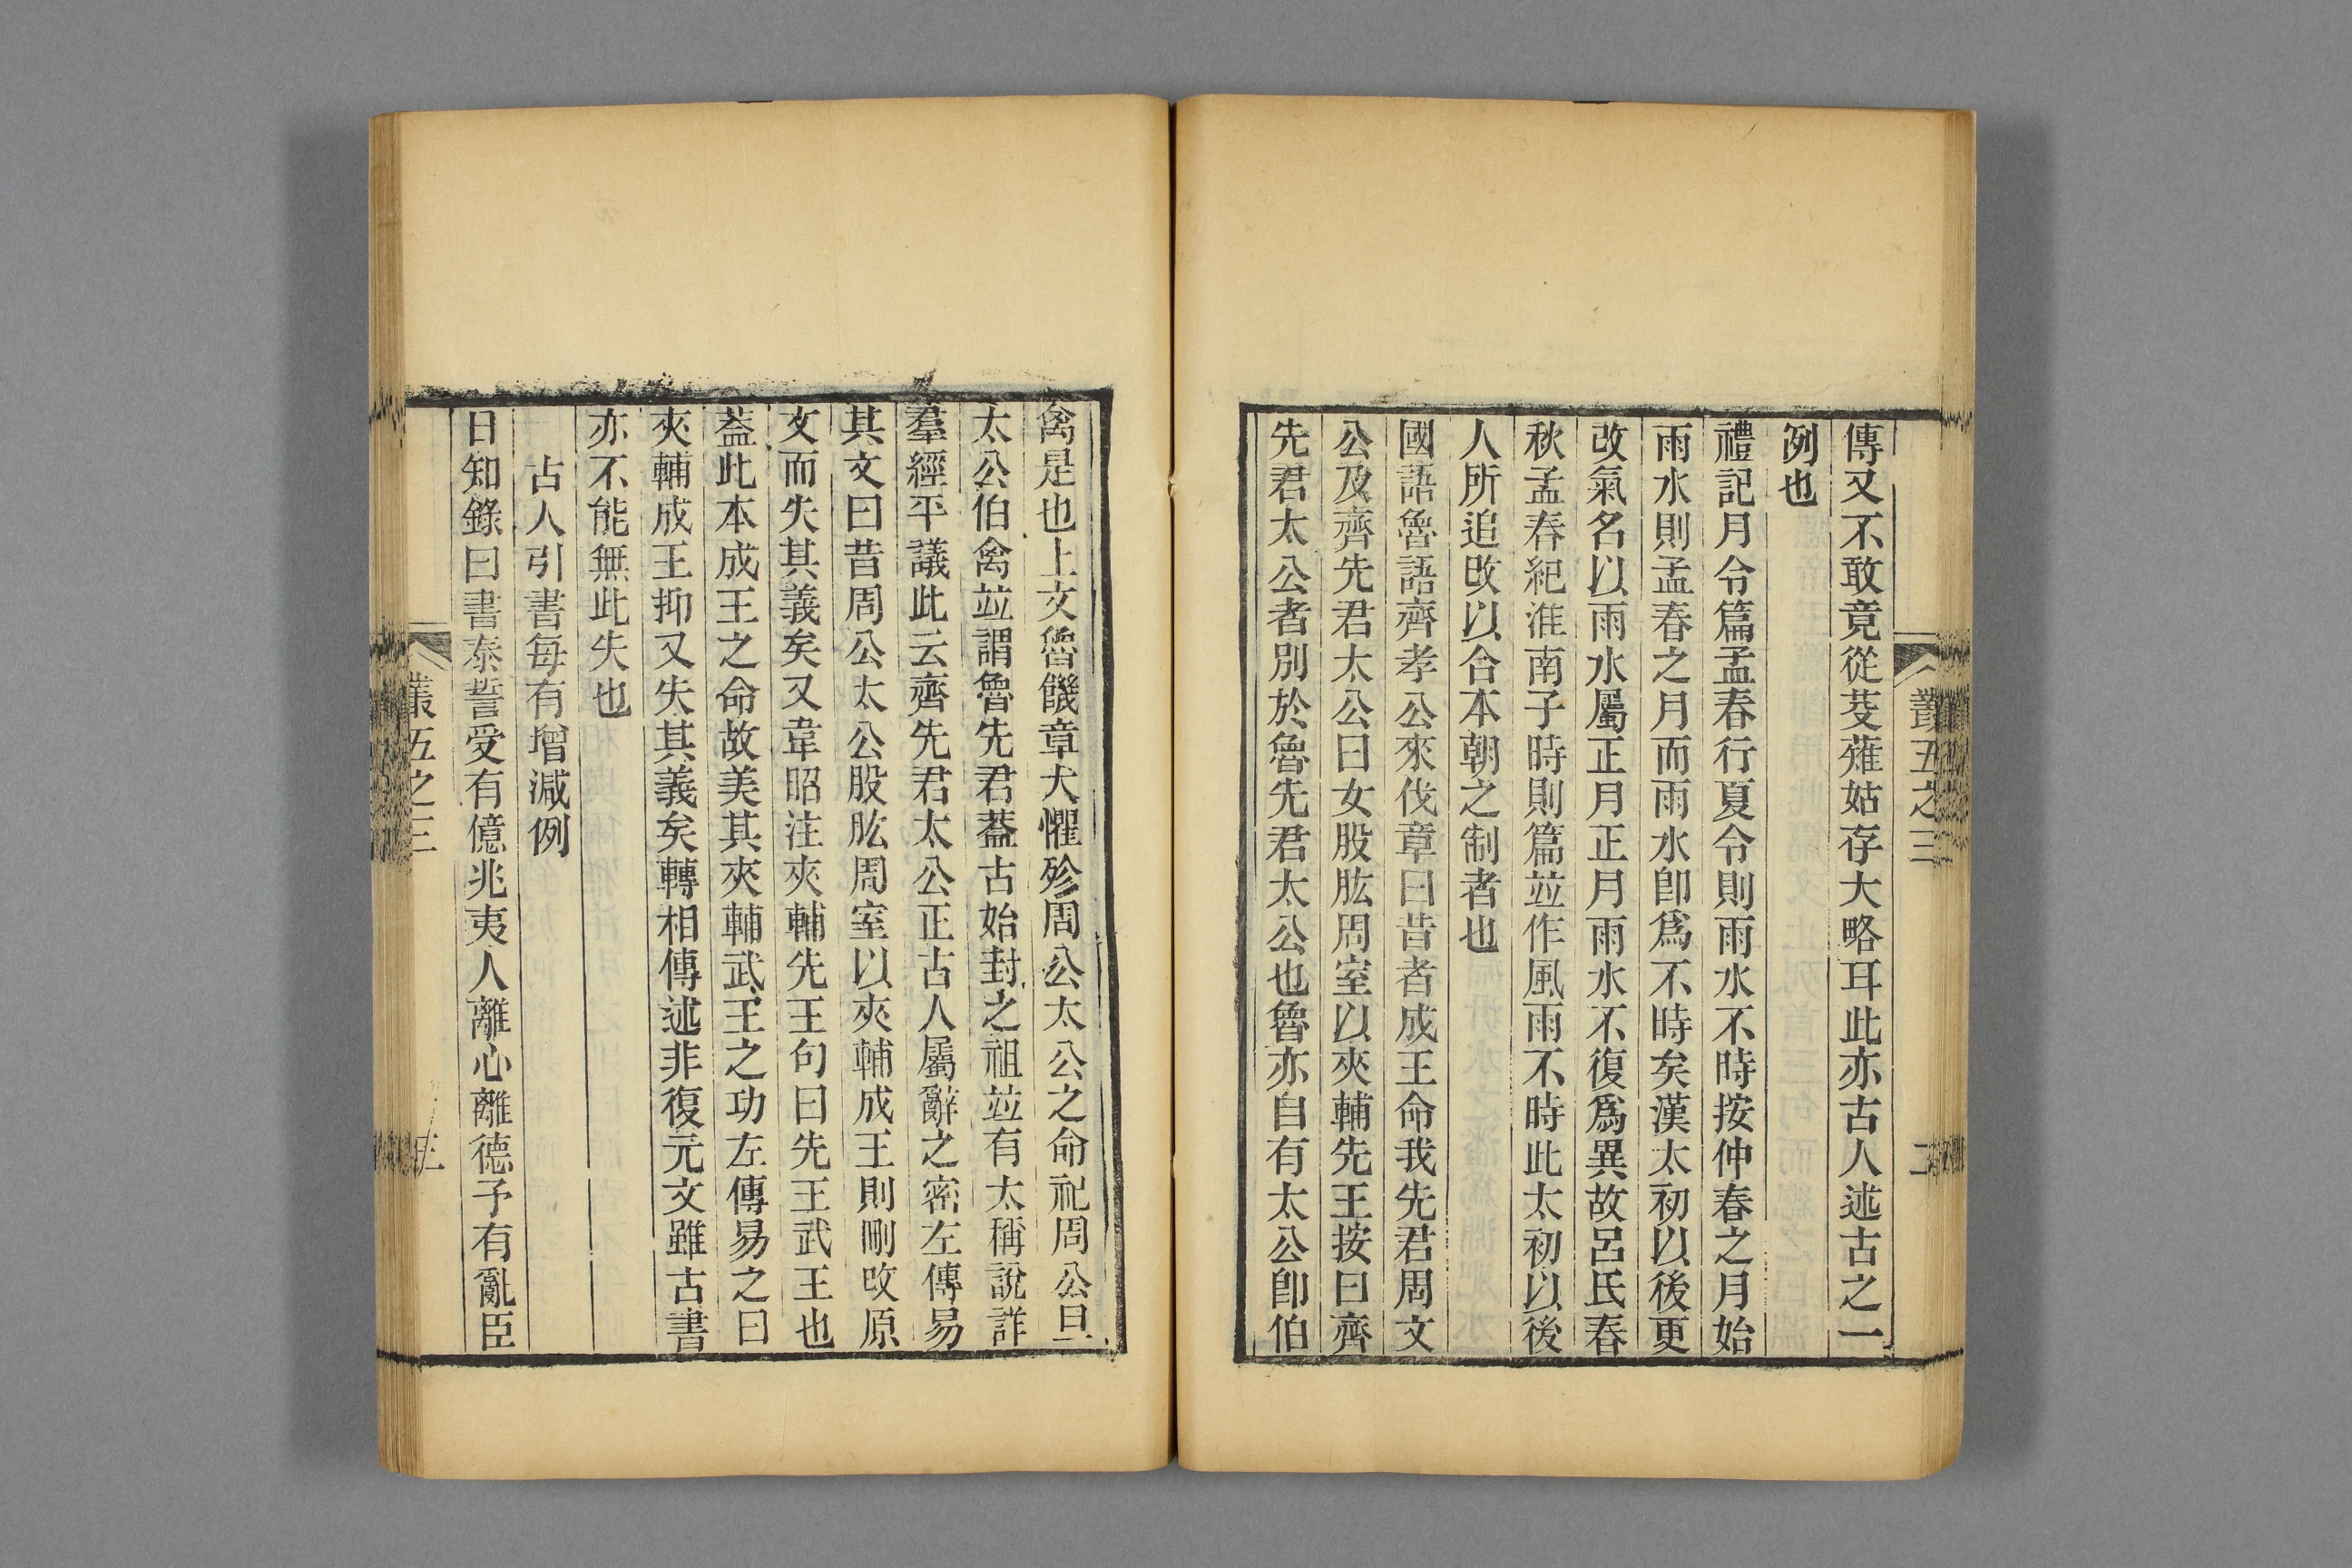 叢五之三
二
傳又不敢竟從芟薙姑存大略耳此亦古人述古之一
例也
禮記月令篇孟春行夏令則雨水不時按仲春之月始
雨水則孟春之月而雨水卽爲不時矣漢太初以後更
改氣名以雨水屬正月正月雨水不復爲異故呂氏春
秋孟春紀淮南子時則篇竝作風雨不時此太初以後
人所追改以合本朝之制者也
國語魯語齊孝公來伐章曰昔者成王命我先君周文
公及齊先君太公曰女股肱周室以夾輔先王按曰齊
先君太公者別於魯先君太公也魯亦自有太公卽伯
禽是也上文魯饑章大懼殄周公太公之命祀周公旦
太公伯禽竝謂魯先君蓋古始封之祖竝有太稱說詳
羣經平議此云齊先君太公正古人屬辭之密左傳易
其文曰昔周公太公股肱周室以夾輔成王則刪改原
文而失其義矣又韋昭注夾輔先王句曰先王武王也
葢此本成王之命故美其夾輔武王之功左傳易之曰
夾輔成王抑又失其義矣轉相傳述非復元文雖古書
亦不能無此失也
古人引書每有增減例
日知錄曰書泰誓受有億兆夷人離心離德予有亂臣
叢五之三
三